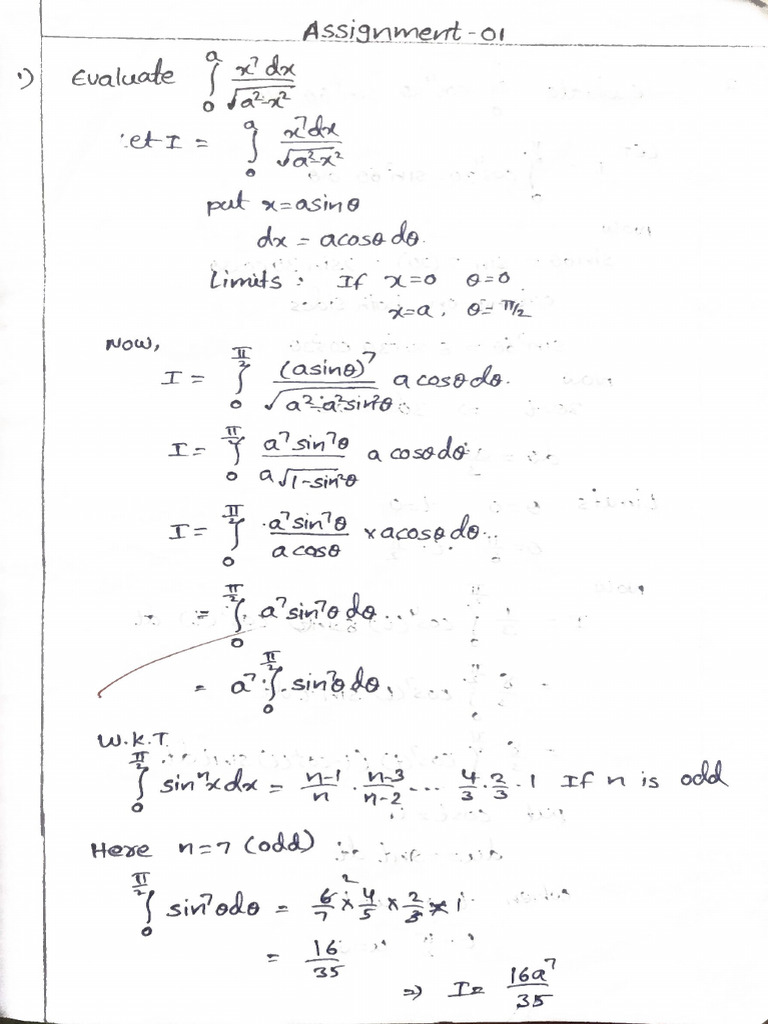 Assignment-01
1) Evaluate ∫₀^a x⁷dx / √(a²-x²)
et I = ∫₀^a x⁷dx / √(a²-x²)
put x=asinθ
dx = acosθ dθ.
Limits : If x=0 θ=0
x=a ; θ=π/2
Now,
I = ∫₀^(π/2) (asinθ)⁷ / √(a²-a²sin²θ) a cosθ dθ.
I = ∫₀^(π/2) a⁷sin⁷θ / a√(1-sin²θ) a cosθ dθ
I = ∫₀^(π/2) a⁷sin⁷θ / a cosθ × a cosθ dθ
= ∫₀^(π/2) a⁷sin⁷θ dθ
= a⁷ ∫₀^(π/2) sin⁷θ dθ
W.K.T
∫₀^(π/2) sinⁿx dx = (n-1)/n · (n-3)/(n-2) ... 4/3 · 2/3 · 1 If n is odd
Here n=7 (odd)
∫₀^(π/2) sin⁷θ dθ = 6/7 × 4/5 × 2/3 × 1
2
= 16/35
⇒ I = 16a⁷/35